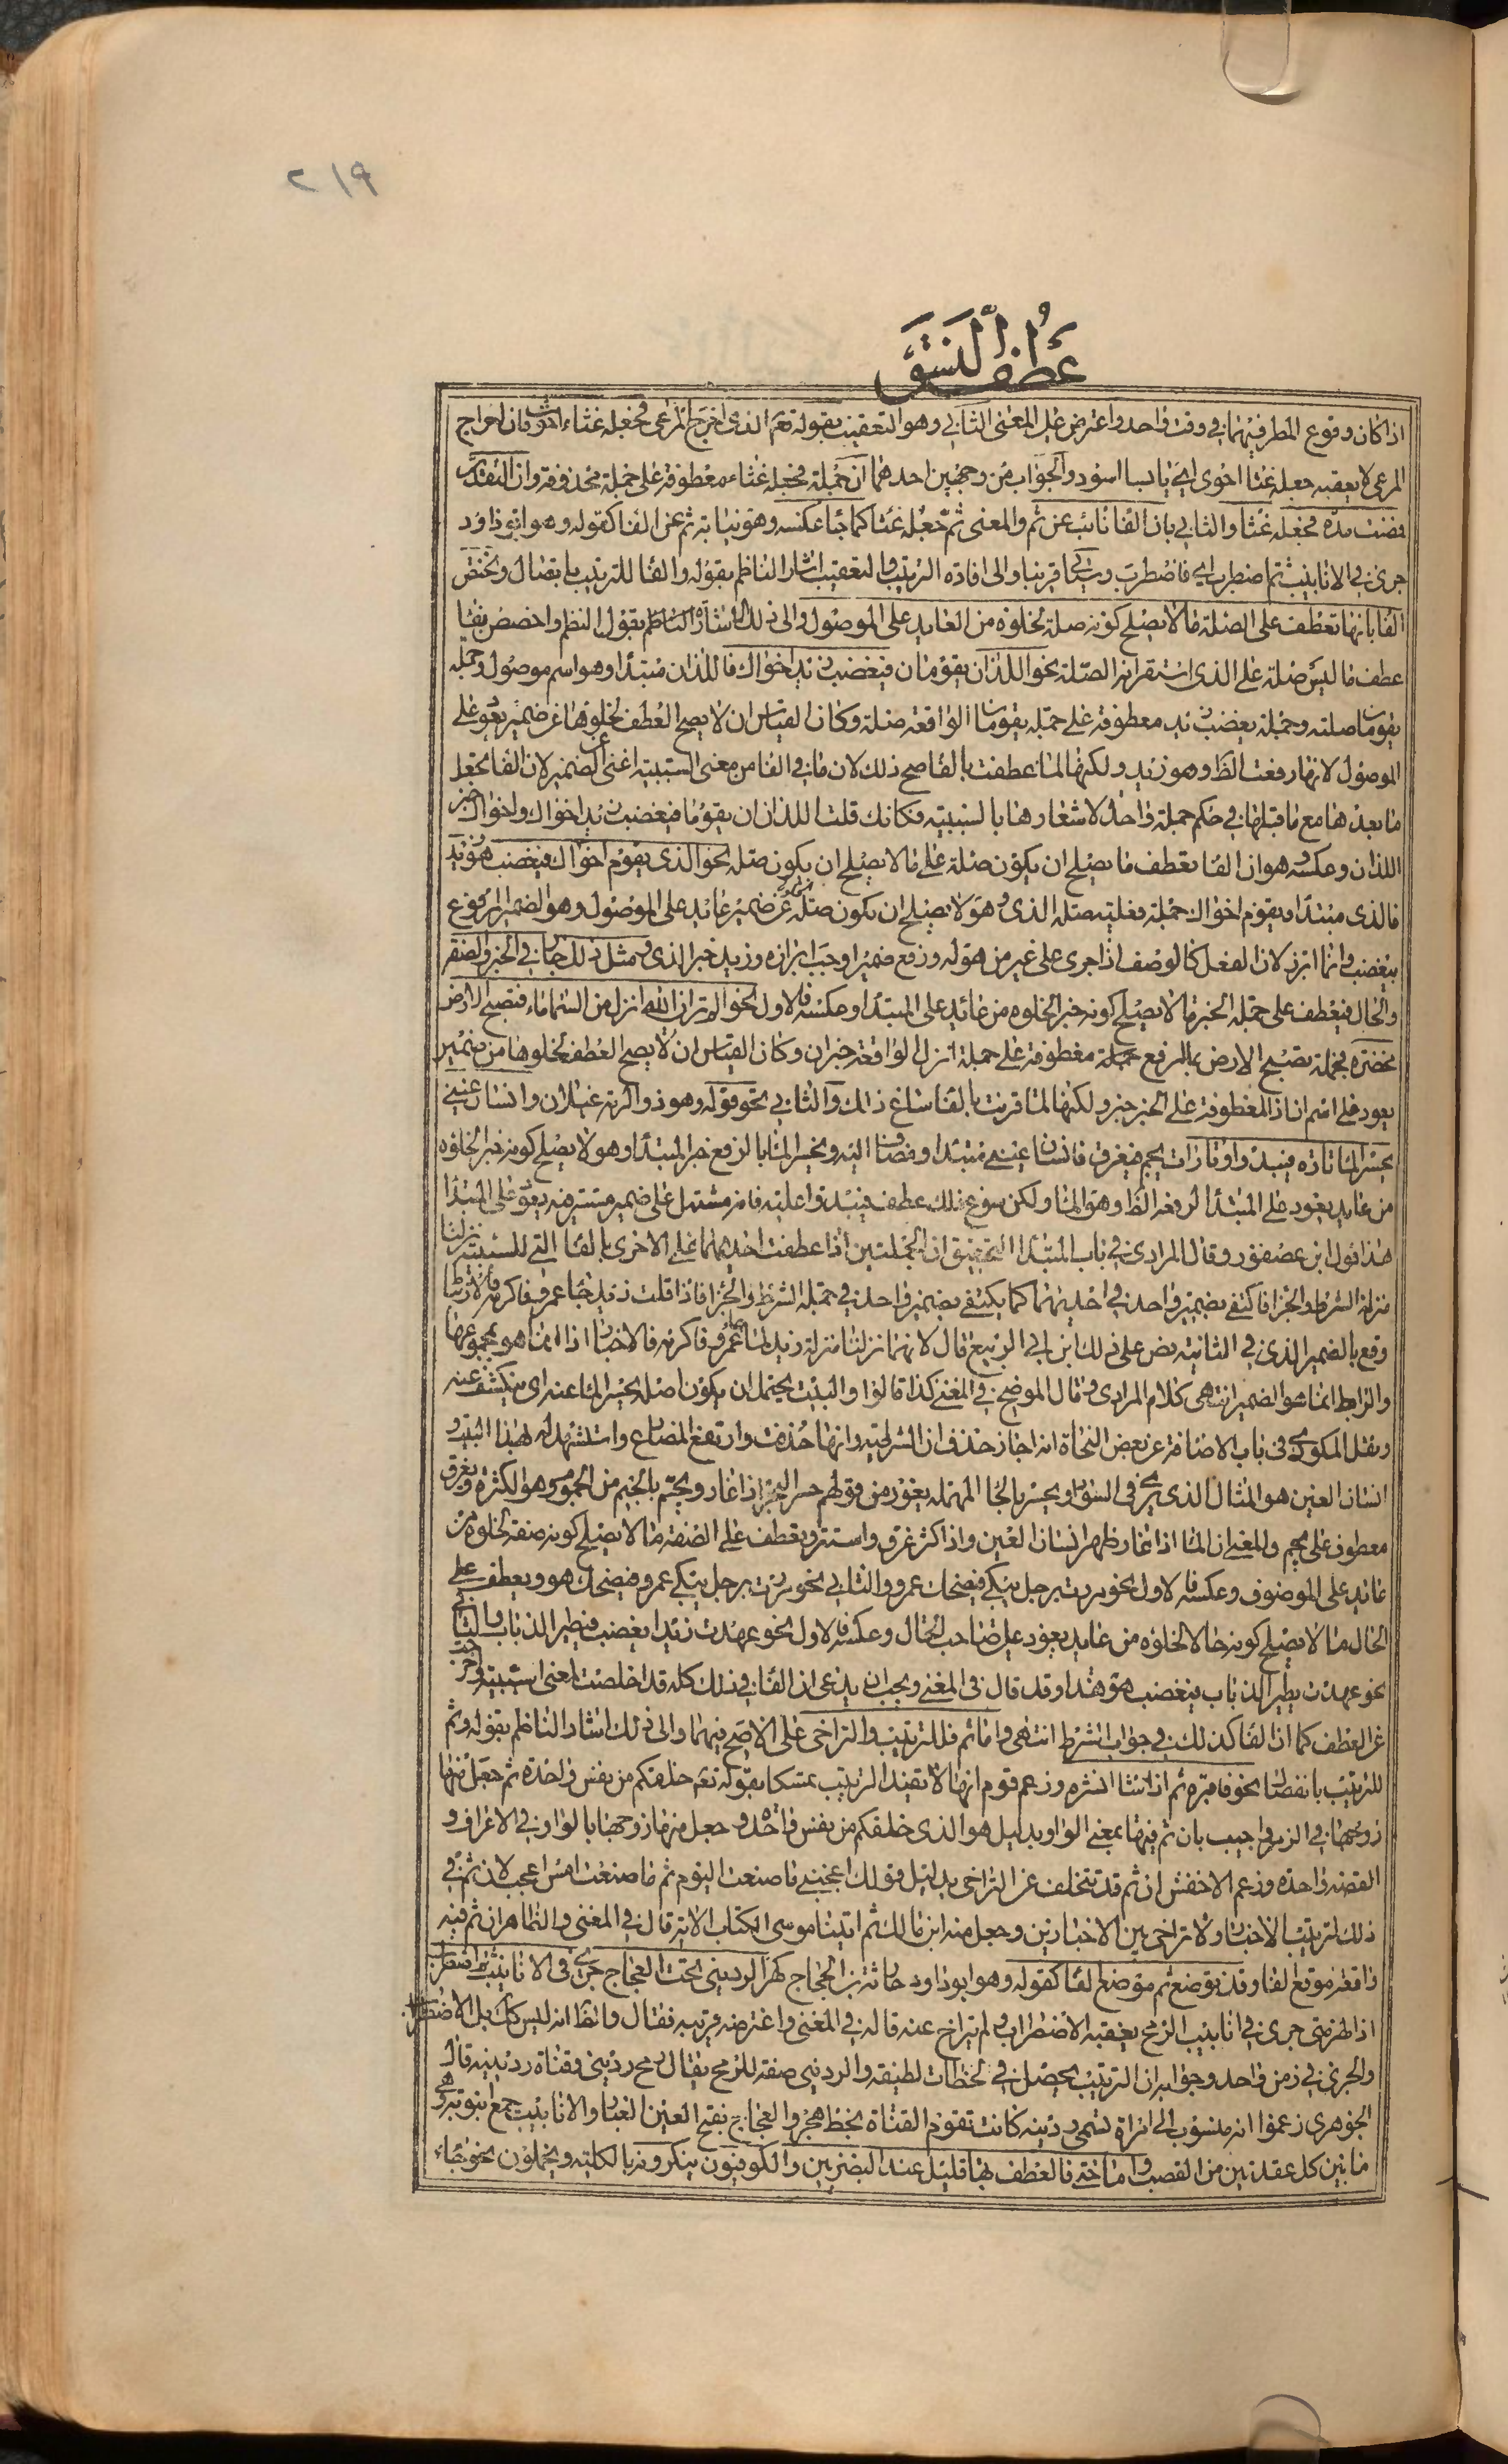 ٢١٩
عطف النسق
اذا كان وقوع المطر فيهما في وقت واحد واعترض على المعنى الثاني وهو التعقيب بقوله تعم الذى اخرج المرعى فجعله غثاء احوى فان اخراج
المرعى لا يعقبه جعله غثاء احوى اى يابسا اسود والجواب من وجهين احدهما ان جملة فجعله غثاء معطوفة على جملة محذوفة وان التقدير
فمضت مدة فجعله غثاء والثاني بان الفاء نائب عن ثم والمعنى ثم جعله غثاء كما جاء عكسه وهو نيابة ثم عن الفاء كقوله وهو ابو داود
جرى في الانابيب ثم اضطرب اى فاضطرب وسياتي قريبا والى افادة الترتيب والتعقيب اشار الناظم بقوله والفاء للترتيب باتصال وتختص
الفاء بانها تعطف على الصلة ما لا يصلح كونه صلة لخلوه من العايد على الموصول والى ذلك اشار الناظم بقول النظم واخصص بفاء
عطف ما ليس صلة على الذى استقر انه الصلة نحو اللذان يقومان فيغضب زيد اخواك فاللذان مبتدا وهو اسم موصول وجملة
يقومان صلته وجملة يغضب زيد معطوفة على جملة يقومان الواقعة صلة وكان القياس ان لا يصح العطف لخلوها عن ضمير يعود على
الموصول لانها رفعت الظ وهو زيد ولكنها لما عطفت بالفا صح ذلك لان ما في الفا من معنى السببية اغنى عن الضمير لان الفا تجعل
ما بعدها مع ما قبلها في حكم جملة واحدة لاشعارها بالسببية فكانك قلت اللذان ان يقوما فيغضب زيد اخواك واخواك خبر
اللذان وعكسه وهو ان الفا تعطف ما يصلح ان يكون صلة على ما لا يصلح ان يكون صلة نحو الذى يقوم اخواك فيغضب هو زيد
فالذى مبتدا ويقوم اخواك جملة فعلية صلة الذى وهو لا يصلح ان يكون صلة لخلوه عن ضمير عايد على الموصول وهو الضمير المرفوع
بيغضب وانما ابرز لان الفعل كالوصف اذا جرى على غير من هو له ورفع ضميرا وجب ابرازه وزيد خبر الذى ومثل ذلك جار في الخبر والصفة
والحال فيعطف على جملة الخبر ما لا يصلح كونه خبر الخلوه من عائد على المبتدا وعكسه فالاول نحو الم تر ان الله انزل من السماء ماء فتصبح الارض
مخضرة فجملة تصبح الارض بالرفع جملة معطوفة على جملة انزل الواقعة خبر ان وكان القياس ان لا يصح العطف لخلوها من ضمير
يعود على اسم ان اذ المعطوفة على الخبر خبر ولكنها لما قرنت بالفا ساغ ذلك والثاني نحو قوله وهو ذو الرمة غيلان وانسان عيني
يحسر الماء تارة فيبدو وتارات يجم فيغرق فانسان عيني مبتدا ومضاف اليه ويحسر الماء بالرفع خبر المبتدا وهو لا يصلح كونه خبر الخلوه
من عايد يعود على المبتدا لرفعه الظ وهو الماء ولكن سوغ ذلك عطف فيبدو عليه فانه مشتمل على ضمير مستتر فيه يعود على المبتدا
هذا قول ابن عصفور وقال المرادى في باب المبتدا التحقيق ان الجملتين اذا عطفت احديهما على الاخرى بالفاء التى للسببية نزلتا
منزلة الشرط والجزا فاكتفى بضمير واحد في احديهما كما يكتفى بضمير واحد في جملة الشرط والجزا فاذا قلت زيد جاء عمرو فاكرمه فالارتباط
وقع بالضمير الذى في الثانية نص على ذلك ابن ابي الربيع قال لانهما نزلتا منزلة زيد لما جاء عمرو فاكرمه فالاخبار اذا انما هو بمجموعهما
والرابط انما هو الضمير انتهى كلام المرادى وقال الموضح في المغنى كذا قالوا والبيت يحتمل ان يكون اصله يحسر الماء عنه اى ينكشف عنه
ونقل المكودى فى باب الاضافة عن بعض النحاة انه اجاز حذف ان الشرطية وانها حذفت وارتفع المضارع واستشهد له بهذا البيت و
انسان العين هو المثال الذى يرى فى السواد ويحسر بالحاء المهملة يغور من قولهم حسر البحر اذا غار ويجم بالجيم من الجموم وهو الكثرة ويغرق
معطوف على يجم والمعنى ان الماء اذا غار ظهر انسان العين واذا كثر غرق واستتر ويعطف على الصفة ما لا يصلح كونه صفة لخلوه من
عايد على الموصوف وعكسه فالاول نحو مررت برجل يبكى فيضحك عمرو والثاني نحو مررت برجل يبكى عمرو فيضحك هو ويعطف على
الحال ما لا يصلح كونه حالا لخلوه من عايد يعود على صاحب الحال وعكسه فالاول نحو عهدت زيدا يغضب فيطير الذباب والثاني
نحو عهدت يطير الذباب فيغضب هو هندا وقد قال في المغنى ويجب ان يدعى ان الفاء في ذلك كله قد اخلصت لمعنى السببية واخرجت
عن العطف كما ان الفا كذلك في جواب الشرط انتهى واما ثم فللترتيب والتراخى على الاصح فيهما والى ذلك اشار الناظم بقوله وثم
للترتيب بانفصال نحو فاقبره ثم اذا شاء انشره وزعم قوم انها لا تفيد الترتيب تمسكا بقوله تعم خلقكم من نفس واحدة ثم جعل منها
زوجها في الزمر واجيب بان ثم فيها بمعنى الواو بدليل هو الذى خلقكم من نفس واحدة وجعل منها زوجها بالواو في الاعراف و
القصة واحدة وزعم الاخفش ان ثم قد تتخلف عن التراخى بدليل قولك اعجبنى ما صنعت اليوم ثم ما صنعت امس اعجب لان ثم في
ذلك لترتيب الاخبار ولا تراخى بين الاخبارين وجعل منه ابن مالك ثم اتينا موسى الكتاب الاية قال في المغنى والظاهر ان ثم فيه
واقعة موقع الفا وقد توضع ثم موضع الفا كقوله وهو ابو داود حارثة بن الحجاج كهز الردينى تحت العجاج جرى فى الانابيب ثم اضطرب
اذ الهز متى جرى في انابيب الرمح يعقبه الاضطراب ولم يتراخ عنه قاله في المغنى واعترضه قريبه فقال والظ انه ليس كك بل الاضطراب
والجرى في زمن واحد وجوابه ان الترتيب يحصل في لحظات لطيفة والردينى صفة للرمح يقال رمح ردينى وقناة ردينية قال
الجوهرى زعموا انه منسوب الى امراة تسمى ردينة كانت تقوم القناة بخط هجر والعجاج بفتح العين الغبار والانابيب جمع انبوبة وهى
ما بين كل عقدتين من القصب واما حتى فالعطف بها قليل عند البصريين والكوفيون ينكرونه بالكلية ويحملون نحو جاء